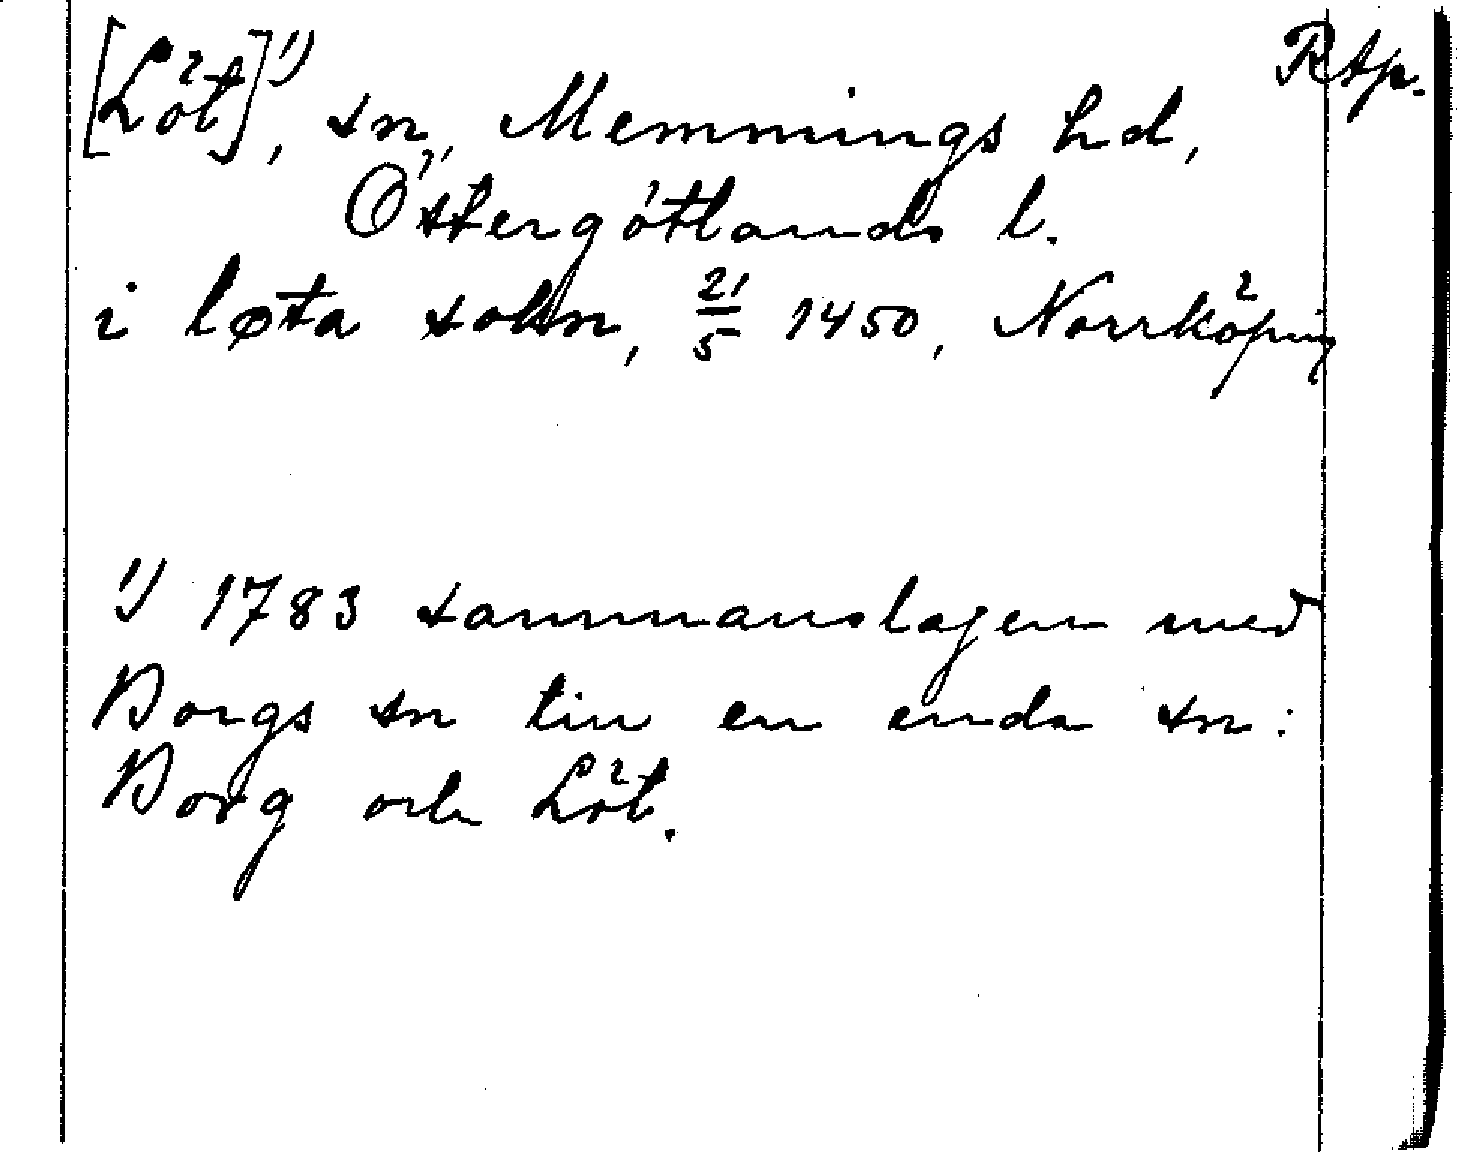 [Löt]¹⁾, sn, Memmings hd, Rtp.
Östergötlands l.
i løta sokn, 21/5 1450, Norrköping
¹⁾ 1783 sammanslagen med
Borgs sn till en enda sn:
Borg och Löt.